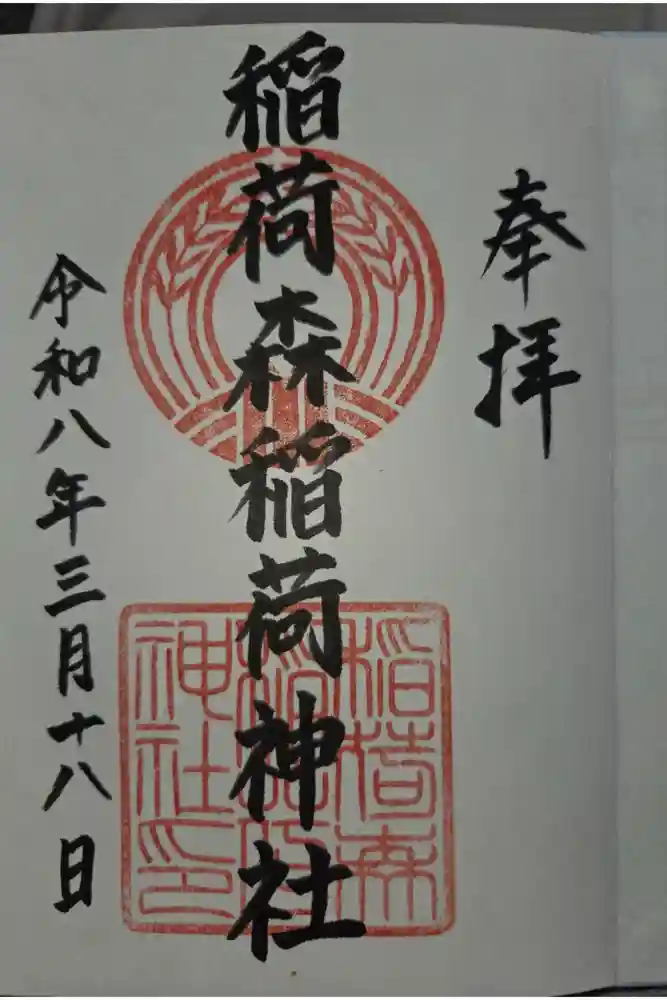 奉拝
稲荷森稲荷神社
令和八年三月十八日
稲荷森
稲荷
神社印